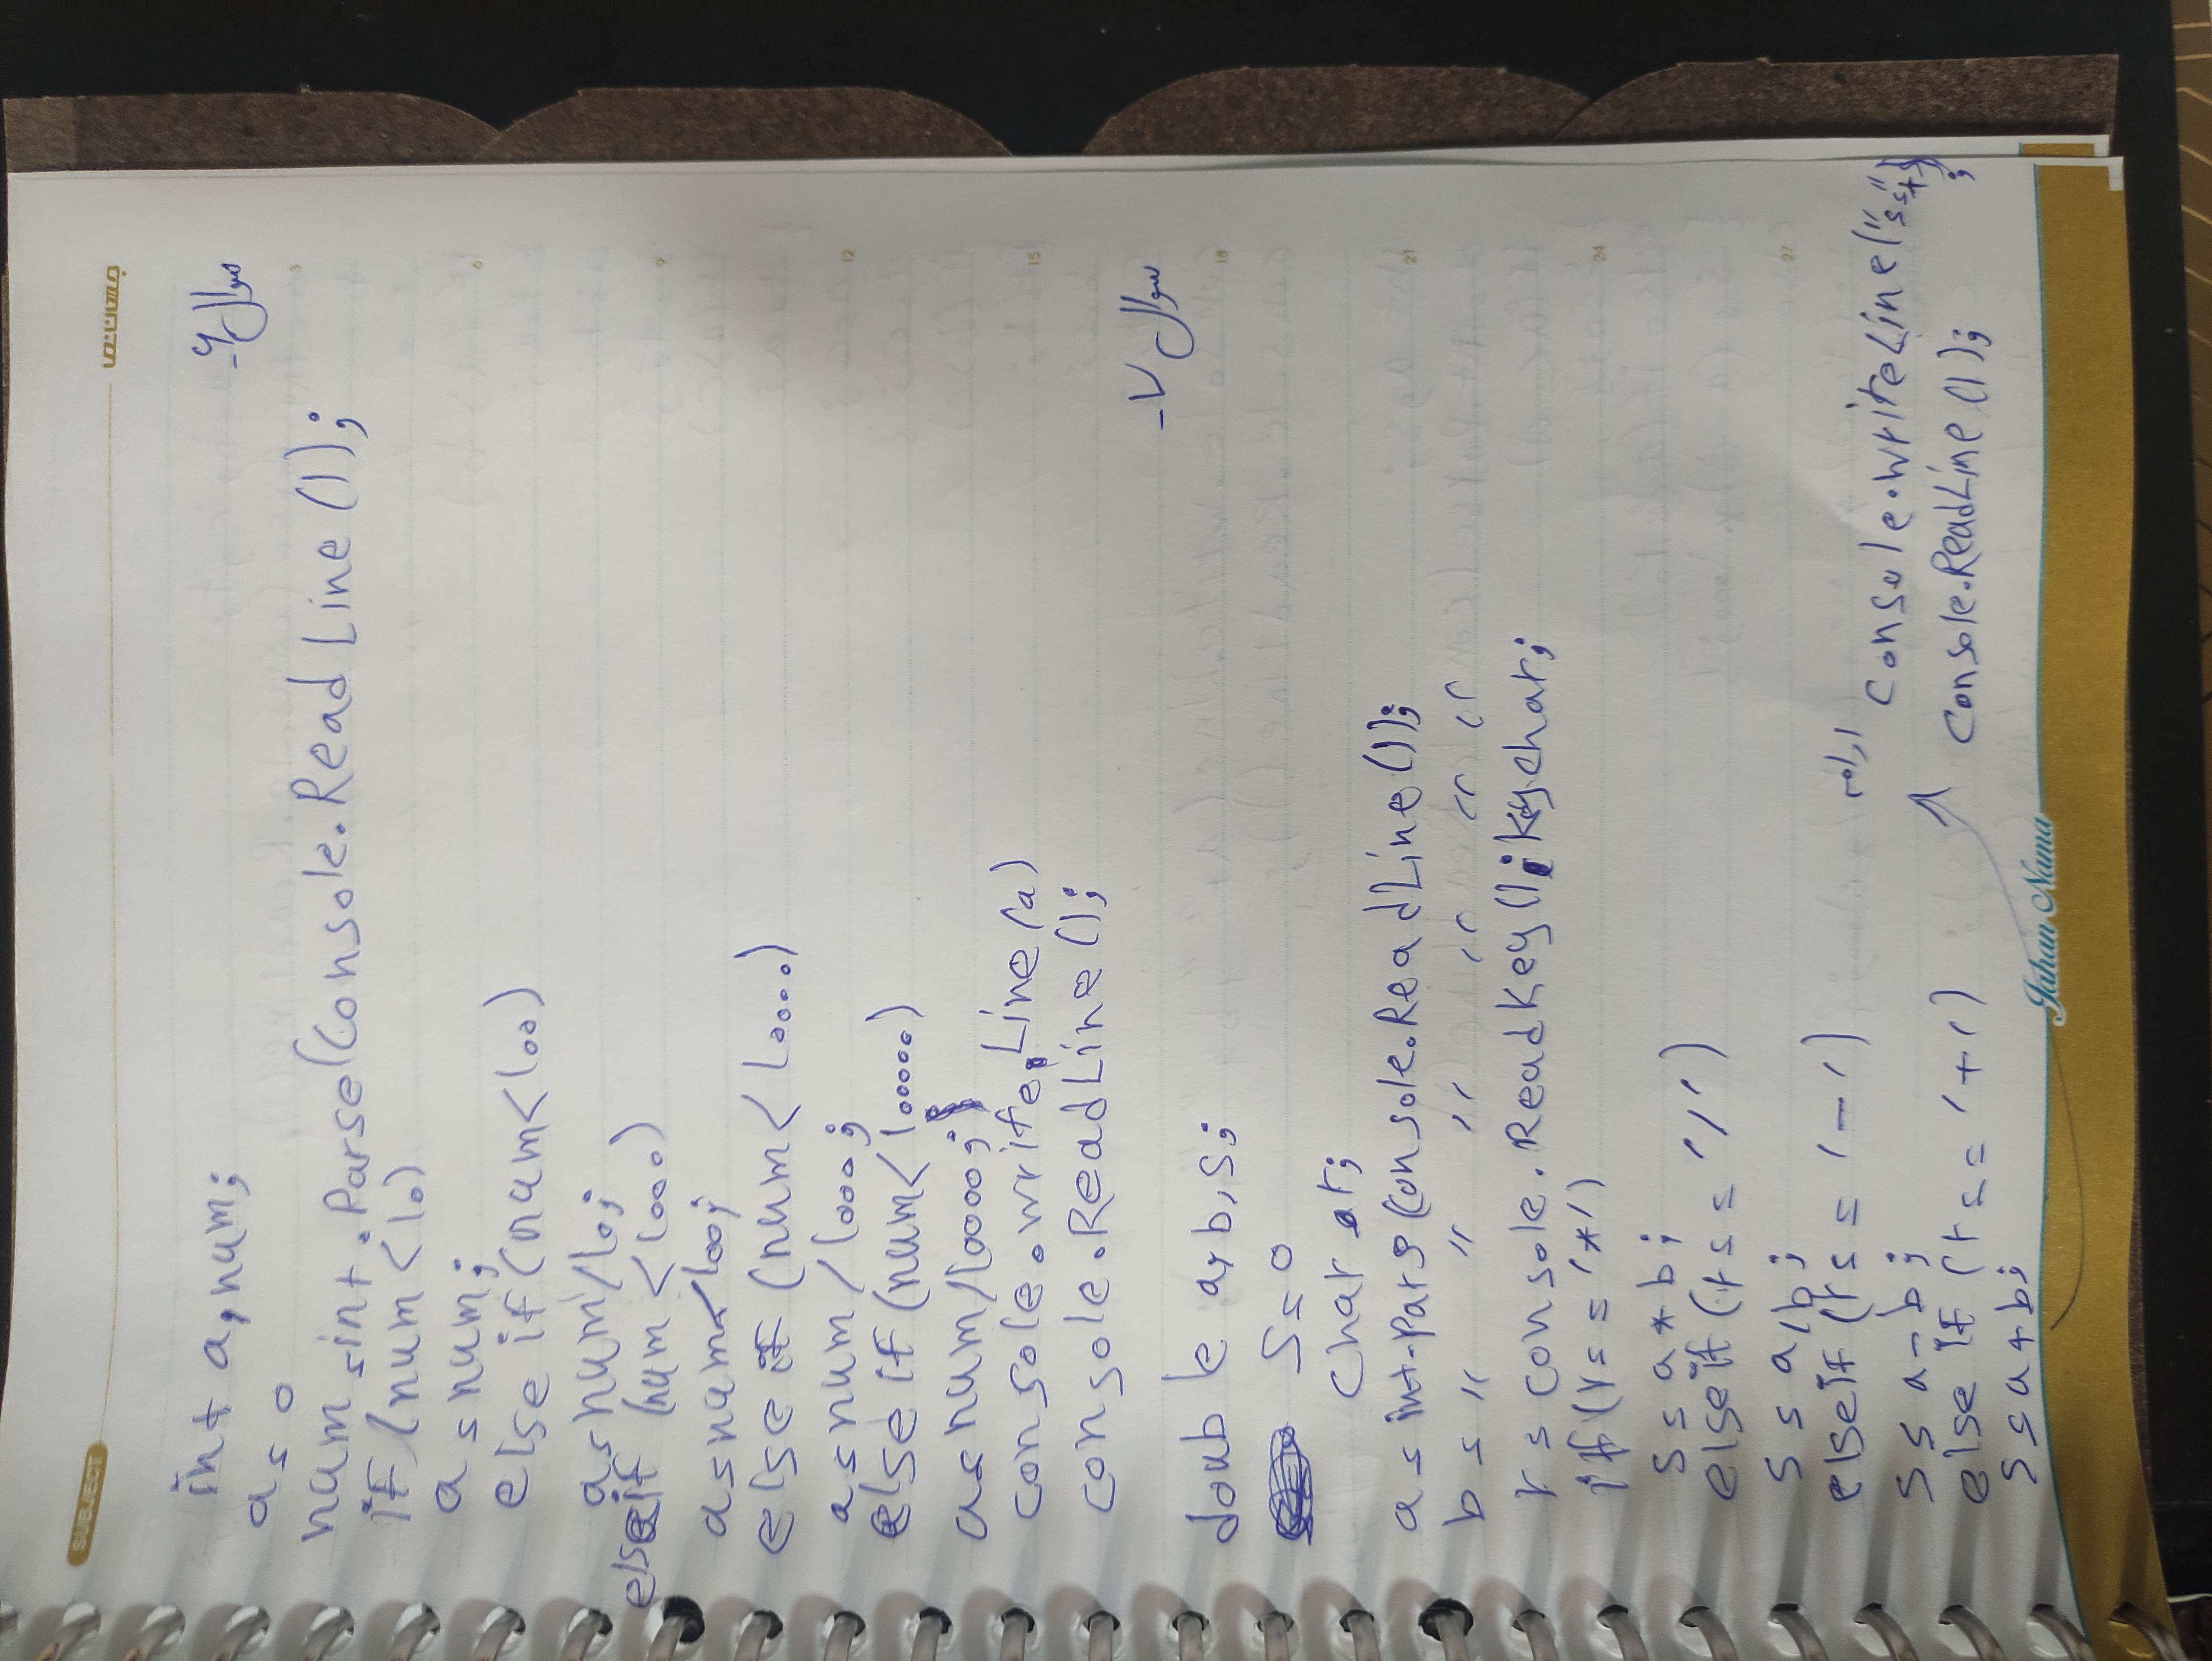 SUBJECT
جهان‌نما
سوال ۶-
int a, num;
a = 0
num = int.Parse(Console.ReadLine());
if (num < 10)
a = num;
else if (num < 100)
a = num/10;
else if (num < 1000)
a = num < 100;
else if (num < 10000)
a = num / 1000;
else if (num < 100000)
a = num/10000;
console.write.Line(a)
console.ReadLine();
سوال ۷-
double a, b, s;
S = 0
Char r;
a = int.Parse(Console.ReadLine());
b = " " " " " "
r = console.ReadKey();Keychar;
if (r == '*')
s = a * b;
else if (r == '/')
s = a/b;
else if (r == '-')
s = a - b;
else if (r == '+')
s = a + b;
ادامه
Console.writeLine("s="+s);
Console.ReadLine();
Jahan Nama